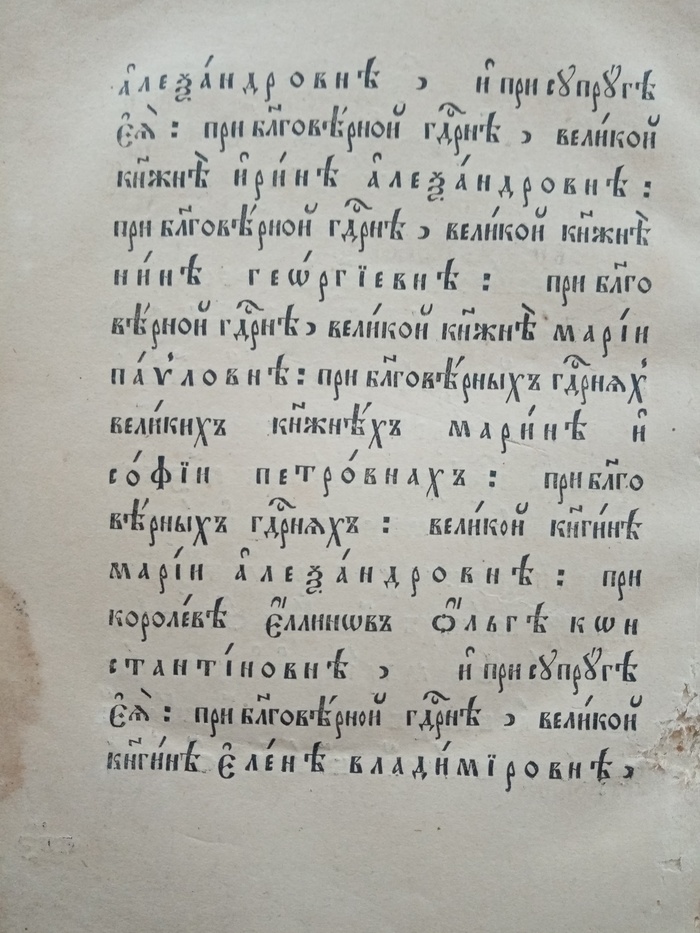 а҆леѯа́ндровнѣ , и҆ при сꙋпрꙋ́гѣ
є҆ѧ̀ : при бл҃говѣ́рной гдⷭ҇рнѣ , вели́кой
кн҃жнѣ̀ и҆ри́нѣ а҆леѯа́ндровнѣ :
при бл҃говѣ́рной гдⷭ҇рнѣ , вели́кой кн҃жнѣ̀
ни́нѣ геѡ́ргїевнѣ : при бл҃го
вѣ́рной гдⷭ҇рнѣ , вели́кой кн҃жнѣ̀ марі́и
па́ѵловнѣ : при бл҃говѣ́рныхъ гдⷭ҇рнѧх̾
вели́кихъ кн҃жнѣ́хъ мари́нѣ и҆
софі́и петро́внахъ : при бл҃го
вѣ́рныхъ гдⷭ҇рнѧхъ : вели́кой кн҃ги́нѣ
марі́и а҆леѯа́ндровнѣ : при
короле́вѣ є҆́ллинѡвъ ѻ҆́льгѣ кѡн
станті́новнѣ , и҆ при сꙋпрꙋ́гѣ
є҆ѧ̀ : при бл҃говѣ́рной гдⷭ҇рнѣ , вели́кой
кн҃ги́нѣ є҆ле́нѣ влади́мїровнѣ ,